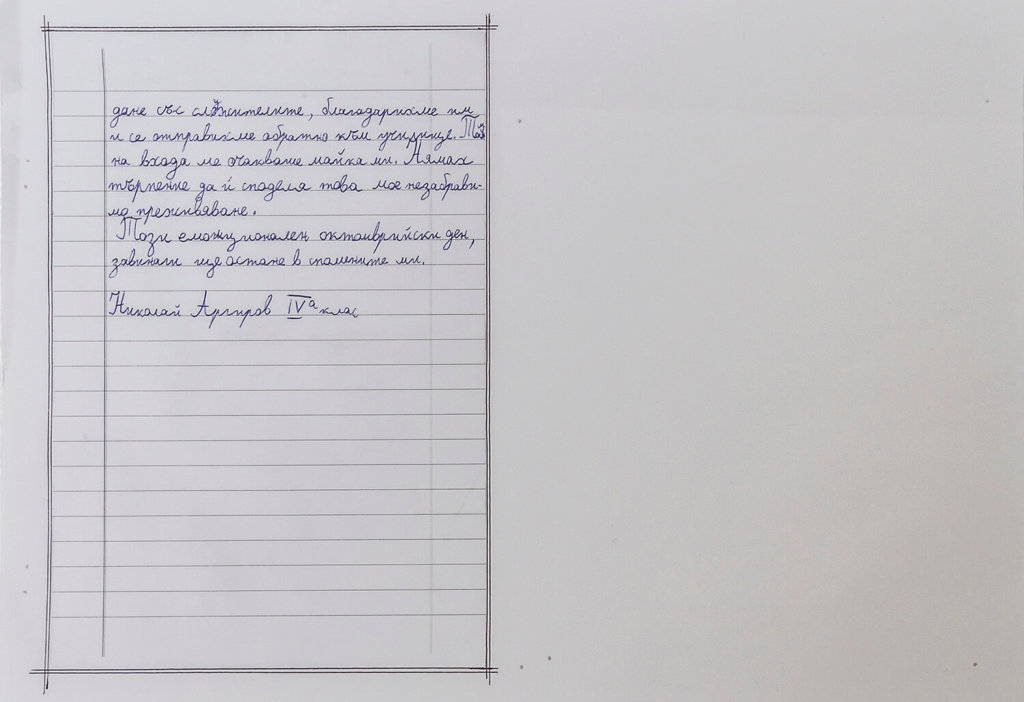 дане със служителите, благодарихме им
и се отправихме обратно към училище. Там
на входа ме очакваше майка ми. Нямах
търпение да ѝ споделя това мое незабрави-
мо преживяване.
Този емоционален октомврийски ден,
завинаги ще остане в спомените ми.
Николай Аргиров IVа клас